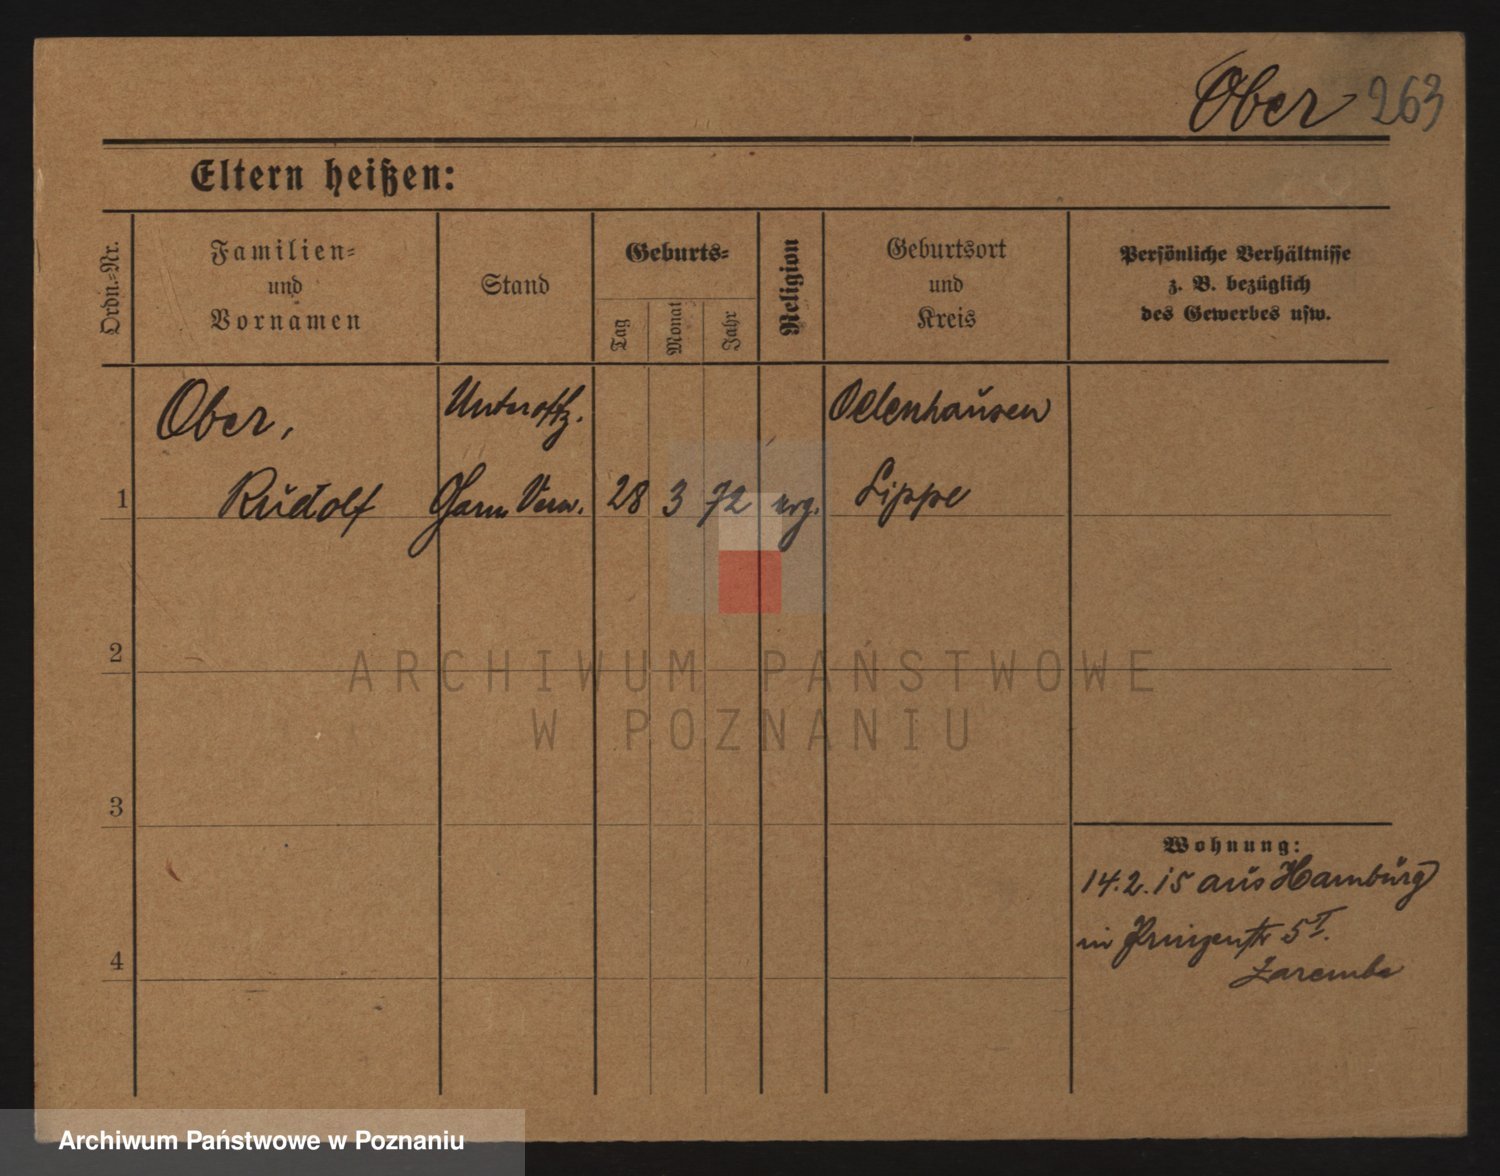 Ober 263
Eltern heißen:
Ordn.-Nr.
Familien-
und
Vornamen
Stand
Geburts-
Tag
Monat
Jahr
Religion
Geburtsort
und
Kreis
Persönliche Verhältnisse
z. B. bezüglich
des Gewerbes usw.
Ober, Unteroffz. Oelenhausen
1 Rudolf Garn Verw. 28 3 72 Lippe
2
3
4
Wohnung:
14.2.15 aus Hamburg
in Prinzenstr 5 I.
Zarembe
ARCHIWUM PAŃSTWOWE
W POZNANIU
Archiwum Państwowe w Poznaniu